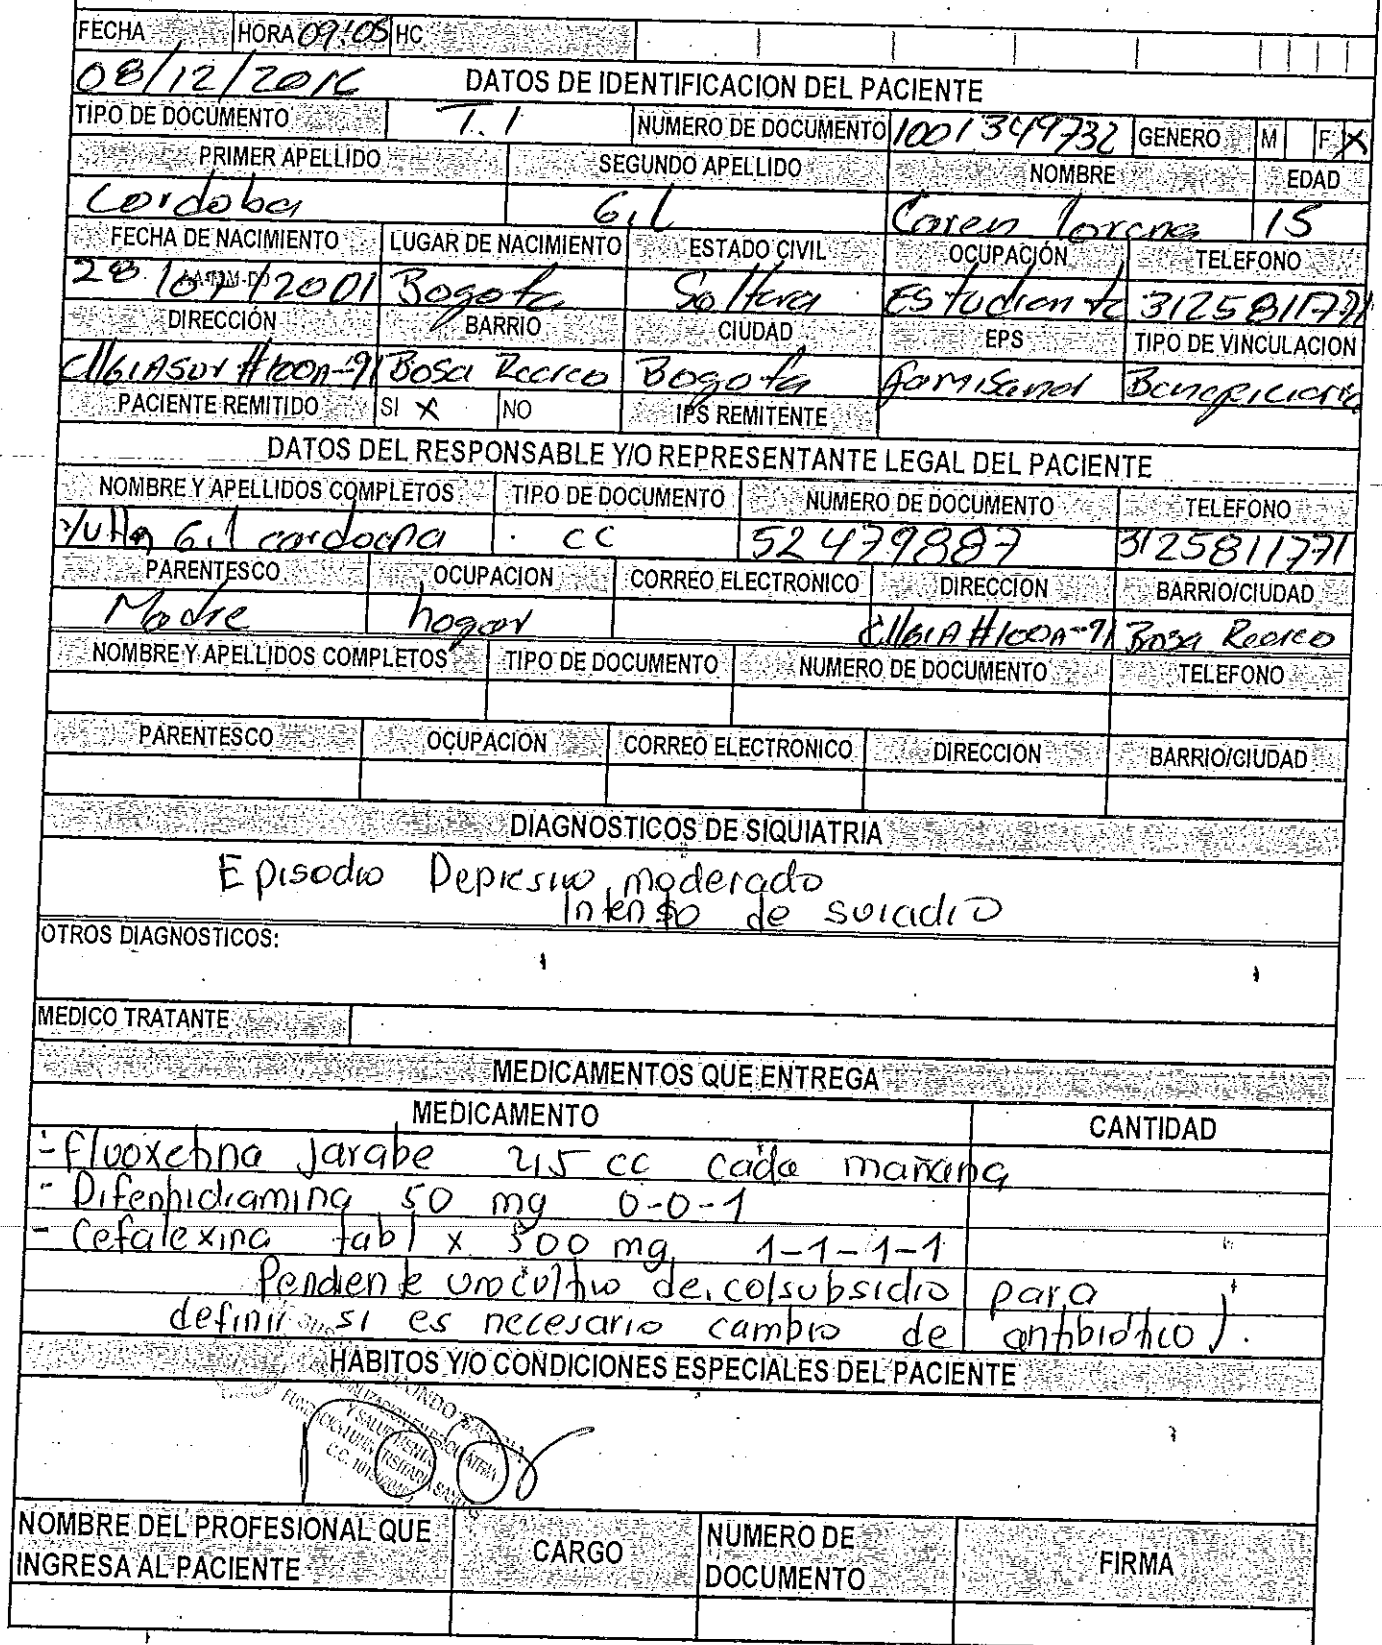 FECHA HORA 09:05 HC
08/12/2016 DATOS DE IDENTIFICACION DEL PACIENTE
TIPO DE DOCUMENTO T.I NUMERO DE DOCUMENTO 1001349732 GENERO M F X
PRIMER APELLIDO SEGUNDO APELLIDO NOMBRE EDAD
Cordoba Gil Caren lorena 15
FECHA DE NACIMIENTO LUGAR DE NACIMIENTO ESTADO CIVIL OCUPACIÓN TELEFONO
28 2001 Bogota Soltera Estudiante 3125811771
DIRECCIÓN BARRIO CIUDAD EPS TIPO DE VINCULACION
Cll61ASur #100A-91 Bosa Recreo Bogota famisanar Beneficiaria
PACIENTE REMITIDO SI X NO IPS REMITENTE
DATOS DEL RESPONSABLE Y/O REPRESENTANTE LEGAL DEL PACIENTE
NOMBRE Y APELLIDOS COMPLETOS TIPO DE DOCUMENTO NUMERO DE DOCUMENTO TELEFONO
Gil CC 52479887 3125811771
PARENTESCO OCUPACION CORREO ELECTRONICO DIRECCION BARRIO/CIUDAD
Madre hogar Cll61A #100A-91 Bosa Recreo
NOMBRE Y APELLIDOS COMPLETOS TIPO DE DOCUMENTO NUMERO DE DOCUMENTO TELEFONO
PARENTESCO OCUPACION CORREO ELECTRONICO DIRECCION BARRIO/CIUDAD
DIAGNOSTICOS DE SIQUIATRIA
Episodio Depresivo moderado
Intento de suicidio
OTROS DIAGNOSTICOS:
MEDICO TRATANTE
MEDICAMENTOS QUE ENTREGA
MEDICAMENTO CANTIDAD
- Fluoxetina Jarabe 2,5 cc cada mañana
- Difenhidramina 50 mg 0-0-1
- Cefalexina tabl x 500 mg 1-1-1-1
Pendiente urocultivo de colsubsidio para
definir si es necesario cambio de antibiótico).
HABITOS Y/O CONDICIONES ESPECIALES DEL PACIENTE
Y SALUD MENTAL
FUNDACION UNIVERSITARIA
C.C.
NOMBRE DEL PROFESIONAL QUE INGRESA AL PACIENTE CARGO NUMERO DE DOCUMENTO FIRMA